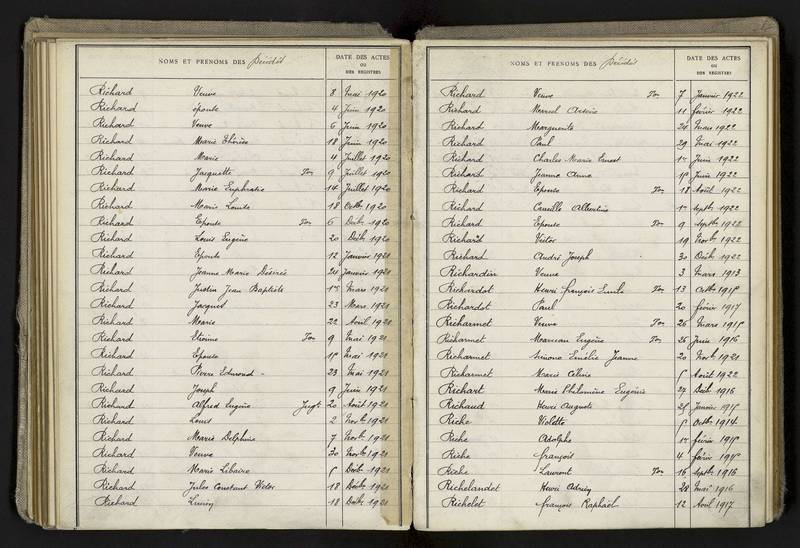 NOMS ET PRENOMS DES Décédés
DATE DES ACTES
OU
DES REGISTRES
Richard Veuve 8 Mai 1920
Richard épouse 4 Juin 1920
Richard Veuve 6 Juin 1920
Richard Marie Thérèse 18 Juin 1920
Richard Marie 4 Juillet 1920
Richard Jacquette Ton 9 Juillet 1920
Richard Marie Euphrasie 14 Juillet 1920
Richard Marie Louise 18 Octb 1920
Richard Epouse Ton 6 Décb 1920
Richard Louis Eugène 20 Décb 1920
Richard Epouse 12 Janvier 1921
Richard Jeanne Marie Désirée 24 Janvier 1921
Richard Justin Jean Baptiste Mars 1921
Richard Jacques 23 Mars 1921
Richard Marie 22 Avril 1921
Richard Etienne Ton 9 Mai 1921
Richard Epouse Mai 1921
Richard Pierre Edmond 23 Mai 1921
Richard Joseph 9 Juin 1921
Richard Alfred Eugène Jugt 20 Août 1921
Richard Louis 2 Novb 1921
Richard Marie Delphine 7 Novb 1921
Richard Veuve 30 Novb 1921
Richard Marie Décb 1921
Richard Jules Constant Victor 18 Décb 1921
Richard 18 Décb 1921
NOMS ET PRENOMS DES Décédés
DATE DES ACTES
OU
DES REGISTRES
Richard Veuve Ton 7 Janvier 1922
Richard Marcel 11 février 1922
Richard Marguerite 24 Mars 1922
Richard Paul 29 Mai 1922
Richard Charles Marie Ernest Juin 1922
Richard Jeanne Anne Juin 1922
Richard Epouse Ton 18 Août 1922
Richard Camille Albertine Septb 1922
Richard Epouse Ton 9 Septb 1922
Richard Victor 19 Novb 1922
Richard André Joseph 30 Décb 1922
Richardin Veuve 3 Mars 1913
Richardot Henri françois Emile Ton 13 Octb
Richardot Paul 20 févrie 1917
Richarmet Veuve Ton 26 Mars
Richarmet Eugène Ton 26 Juin 1916
Richarmet Simone Emélie Jeanne 20 Novb 1921
Richarmet Marie Céline Août 1922
Richart Marie Philomène Eugénie 27 Décb 1916
Richaud Henri Auguste Janvier
Riche Violette Octb 1914
Riche Adolphe février
Riche françois 4 févrie
Riche Laurent Ton 16 Septb 1916
Richelandet Henri 28 Mai 1916
Richelet françois Raphaël 12 Avril 1917